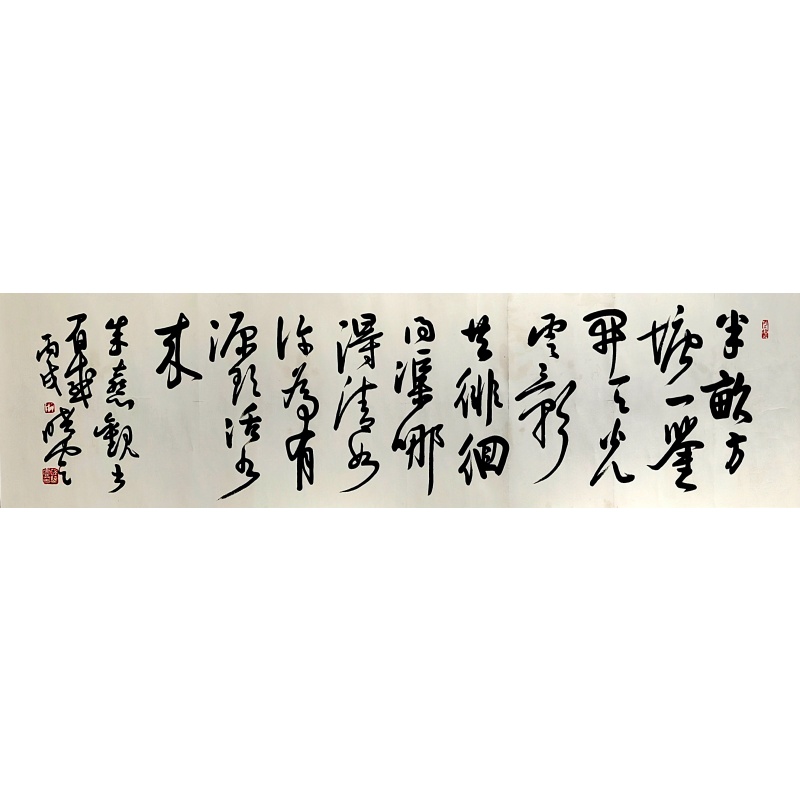 半畝方
塘一鑒
開天光
雲影
共徘徊
问渠哪
得清如
許為有
源頭活水
來
朱熹觀書
有感
丙戌 曉雲